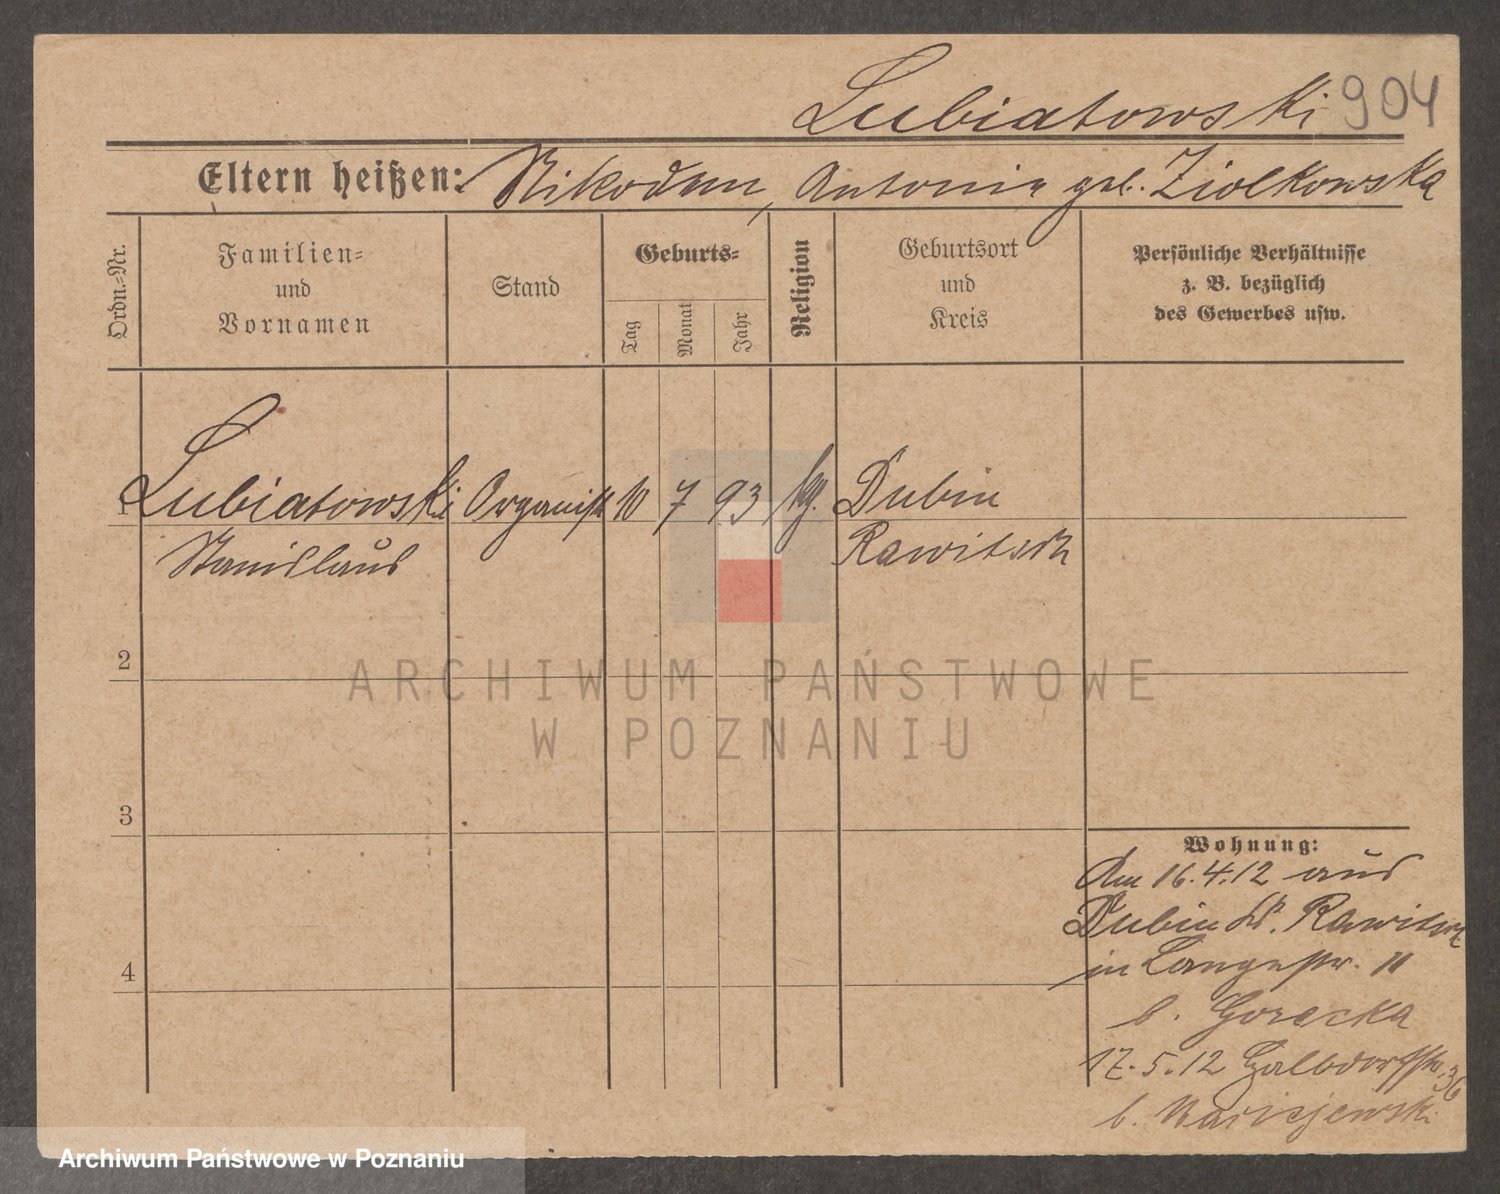 Lubiatowski 904
Eltern heißen: Nikodem, Antonie geb. Ziolkowska
Ordn.-Nr.
Familien-
und
Vornamen
Stand
Geburts-
Tag
Monat
Jahr
Religion
Geburtsort
und
Kreis
Persönliche Verhältnisse
z. B. bezüglich
des Gewerbes usw.
1 Lubiatowski Organist 10 7 93 kg. Dubin
Stanislaus Rawitsch
2
3
4
Wohnung:
Am 16.4.12 aus
Dubin Kr. Rawitsch
in Langestr. 11
b. Gorecka
17.5.12 36
b.
ARCHIWUM PAŃSTWOWE
W POZNANIU
Archiwum Państwowe w Poznaniu